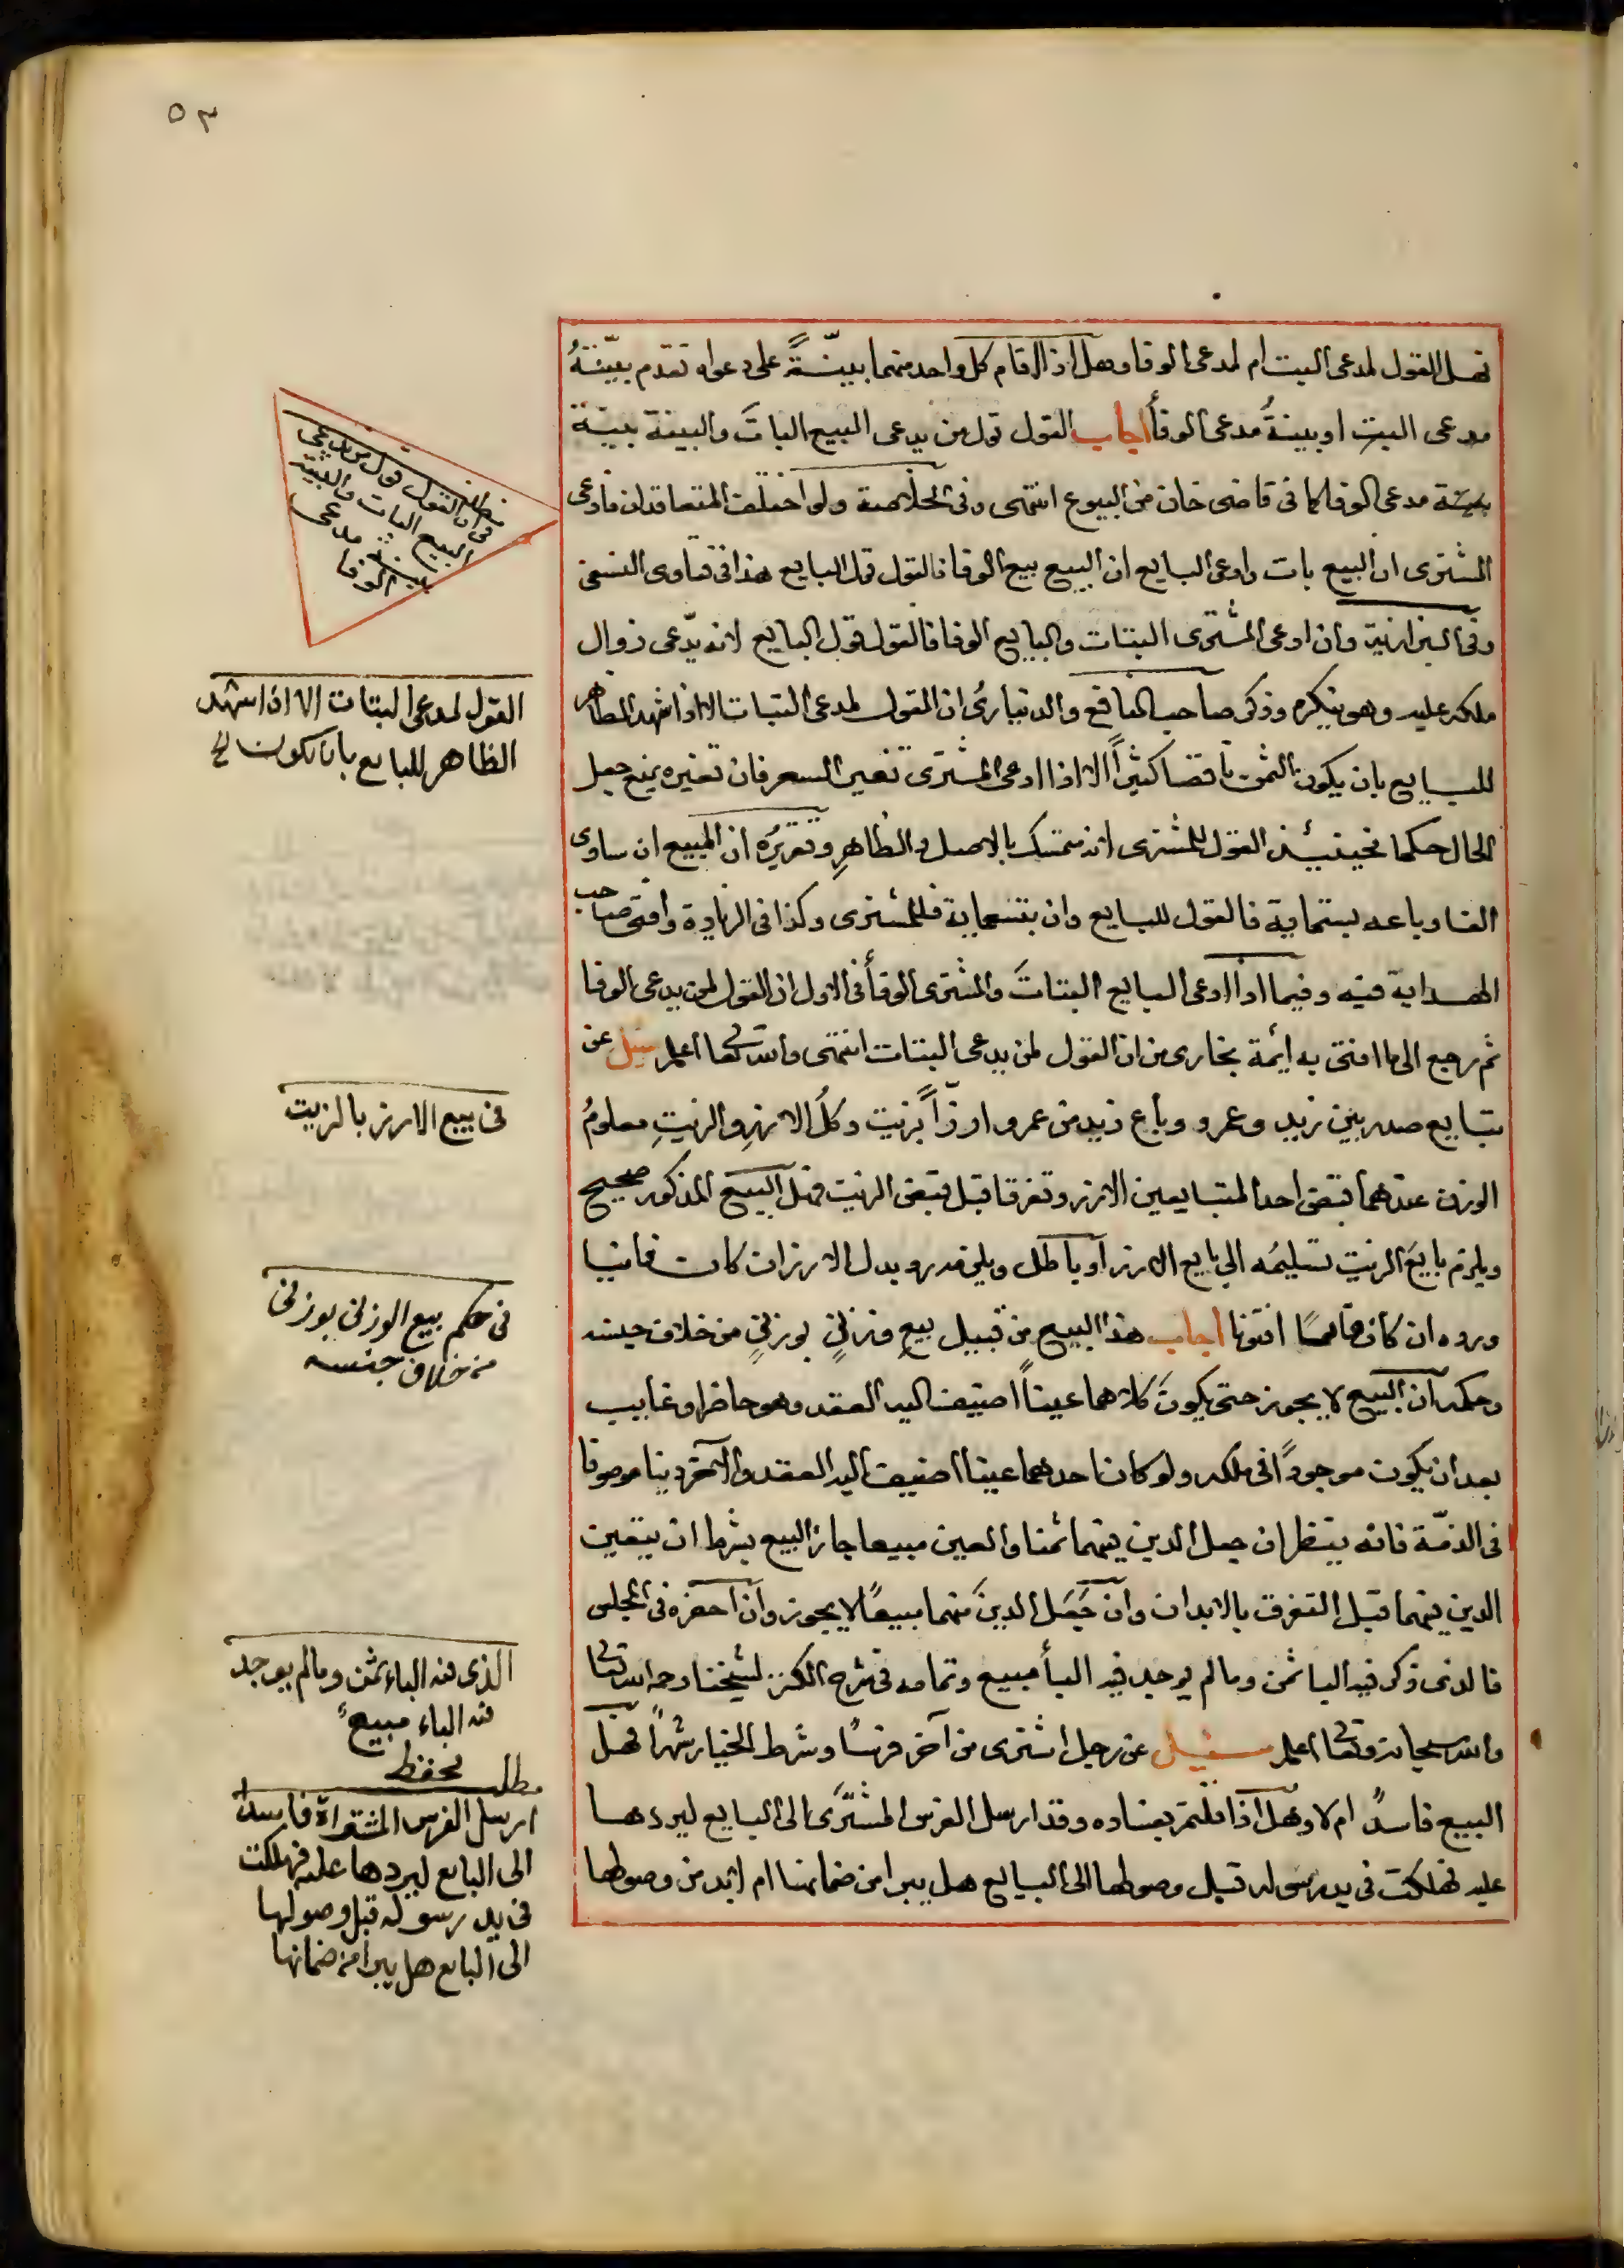 ٥٣
فهل القول لمدعى البت ام لمدعى الوفا وهل اذا اقام كل واحد منهما بينةً على دعواه تقدم بينةُ
مدعى البت او بينةُ مدعى الوفأ اجاب القول قول من يدعى البيع الباتَّ والبينة بينة
بينة مدعى الوفا كما فى قاضى خان من البيوع انتهى وفى الخلاصة ولو اختلف المتعاقدان فادعى
المشترى ان البيع بات وادعى البايع ان البيع بيع الوفا فالقول قول البايع هذا فى فتاوى النسفى
وفى البزازية وان ادعى المشترى البتات والبايع الوفا فالقول قول البايع لانه يدّعى زوال
ملكه عليه وهو ينكره وذكر صاحب المنافع والدينارىُ ان القول لمدعى البتات الا اذا شهد الظاهر
للبايع بان يكون الثمن ناقصا كثيراً الا اذا ادعى المشترى تغير السعر فان تغيره يمنع جعل
الحال حكما فحينئذ القول للمشترى انه متمسك بالاصل والظاهرِ وتقريرُه ان المبيع ان ساوى
الفا وباعه بستماية فالقول للبايع وان بتسعماية فللمشترى وكذا فى الزيادة وافتى صاحب
الهداية فيه وفيما اذا ادعى البايع البتاتَ والمشترى الوفأ فى الاول ان القول لمن يدعى الوفا
ثم رجع الى ما افتى به ايمة بخارى من ان القول لمن يدعى البتات انتهى والله تعالى اعلم سئل عن
تبايع صدر بين زيد وعمرو وباع زيد من عمرو ارزاً بزيت وكلُ الارزِ والزيتِ معلومُ
الوزن عندهما فقبض احد المتبايعين الارز وتفرقا قبل قبض الزيت فهل البيع المذكور صحيح
ويلزم بايعَ الزيت تسليمُه الى بايع الارز او باطل ويلزمه رد بدل الارز ان كان فانيا
ورده ان كان قايمًا افتونا اجاب هذا البيع من قبيل بيع وزنىٍ بوزنىٍ من خلاف جنسه
وحكمه ان البيع لا يجوز حتى يكونَ كلاهما عيناً اضيف اليه العقد وهو حاضر او غايب
بعد ان يكون موجوداً فى ملكه ولو كان احدهما عينا اضيف اليه العقد والآخر دينا موصوفا
فى الذمّة فانه ينظر ان جعل الدين منهما ثمنا والعين مبيعا جاز البيع بشرط ان يتعين
الدين منهما قبل التفرق بالابدان وان جَعَل الدينَ منهما مبيعًا لا يجوز وان احضره فى المجلس
فالذى ذكر فيه البا ثمن وما لم يوجد فيه البأ مبيع وتمامه فى شرح الكنز لشيخنا رحمه الله تعالى
والله سبحانه وتعالى اعلم سئيل عن رجل اشترى من آخر فرسًا وشرط الخيار شهراً فهل
البيع فاسدٌ ام لا وهل اذا قلتم بفساده وقد ارسل الفرس المشترى الى البايع ليردها
عليه فهلكت فى يد رسوله قبل وصولها الى البايع هل يبرا من ضمانها ام لابد من وصولها
مطلب
فى ان القول قول من يدعى
البيع البات والبينة
بينة مدعى
الوفا
القول لمدعى البتات الا اذا شهد
الظاهر للبايع بان يكون الخ
فى بيع الارز بالزيت
فى حكم بيع الوزنى بوزنى
من خلاف جنسه
الذى فيه الباء ثمن ومالم يوجد
فيه الباء مبيعٌ
محفظ
مطلب
ارسل الفرس المشتراة فاسداً
الى البايع ليردها عليه فهلكت
فى يد رسوله قبل وصولها
الى البايع هل يبرا من ضمانها